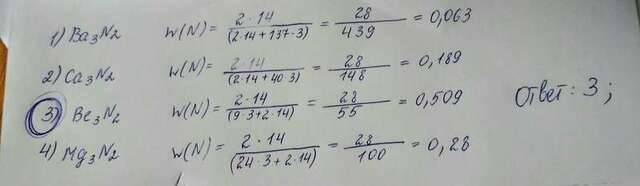 1) Ba3N2 w(N) = 2·14 / (2·14+137·3) = 28 / 439 = 0,063
2) Ca3N2 w(N) = 2·14 / (2·14+40·3) = 28 / 148 = 0,189
3) Be3N2 w(N) = 2·14 / (9·3+2·14) = 28 / 55 = 0,509 Ответ: 3;
4) Mg3N2 w(N) = 2·14 / (24·3+2·14) = 28 / 100 = 0,28